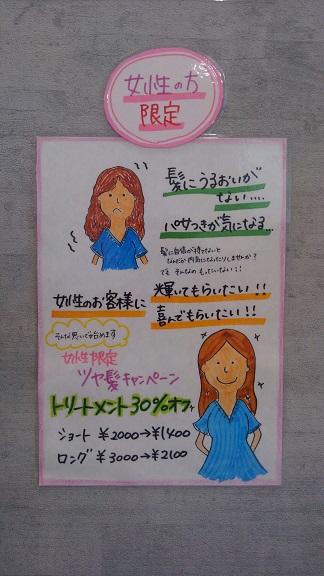 女性の方
限定
髪にうるおいが
ない....
パサつきが気になる...
髪に自信が持てないと
なんだか内気になったりしませんか?
でも そんなの もったいない!!
女性のお客様に
輝いてもらいたい!!
喜んでもらいたい!!
そんな思いで始めます
女性限定
ツヤ髪キャンペーン
トリートメント30%オフ
ショート ¥2000→¥1400
ロング ¥3000→¥2100